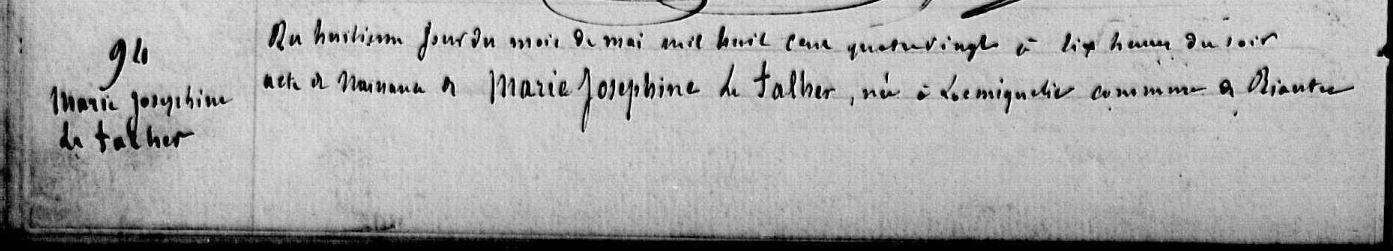 94
Marie Josephine
Le Talher
Du huitieme jour du mois de mai mil huit cent quatrevingt à six heures du soir
acte de Naissance de Marie Josephine Le Talher, née à Locmiquelic commune de Riantec